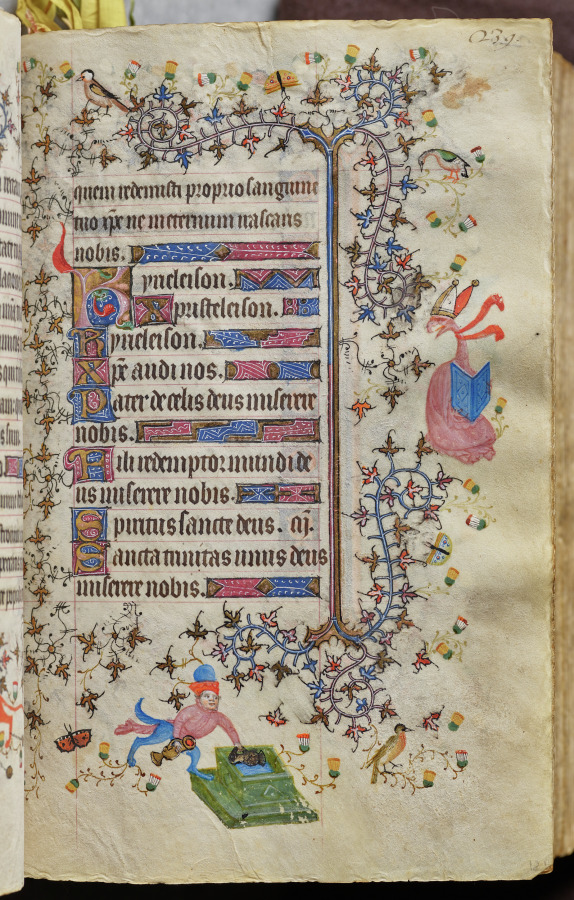 239.
quem redemisti proprio sanguine
tuo xpe ne in eternum irascaris
nobis.
Kyrieleison.
Christeleison.
Kyrieleison.
Xpe audi nos.
Pater de celis deus miserere
nobis.
Fili redemptor mundi de
us miserere nobis.
Spiritus sancte deus. m.
Sancta trinitas unus deus
miserere nobis.